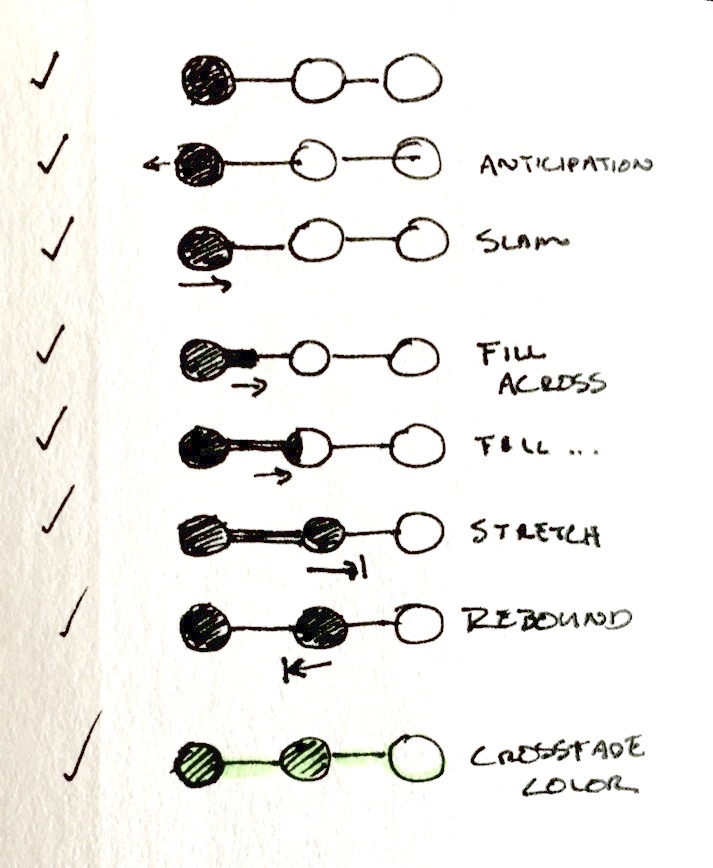 ANTICIPATION
SLAM
FILL
ACROSS
FILL ...
STRETCH
REBOUND
CROSSFADE
COLOR